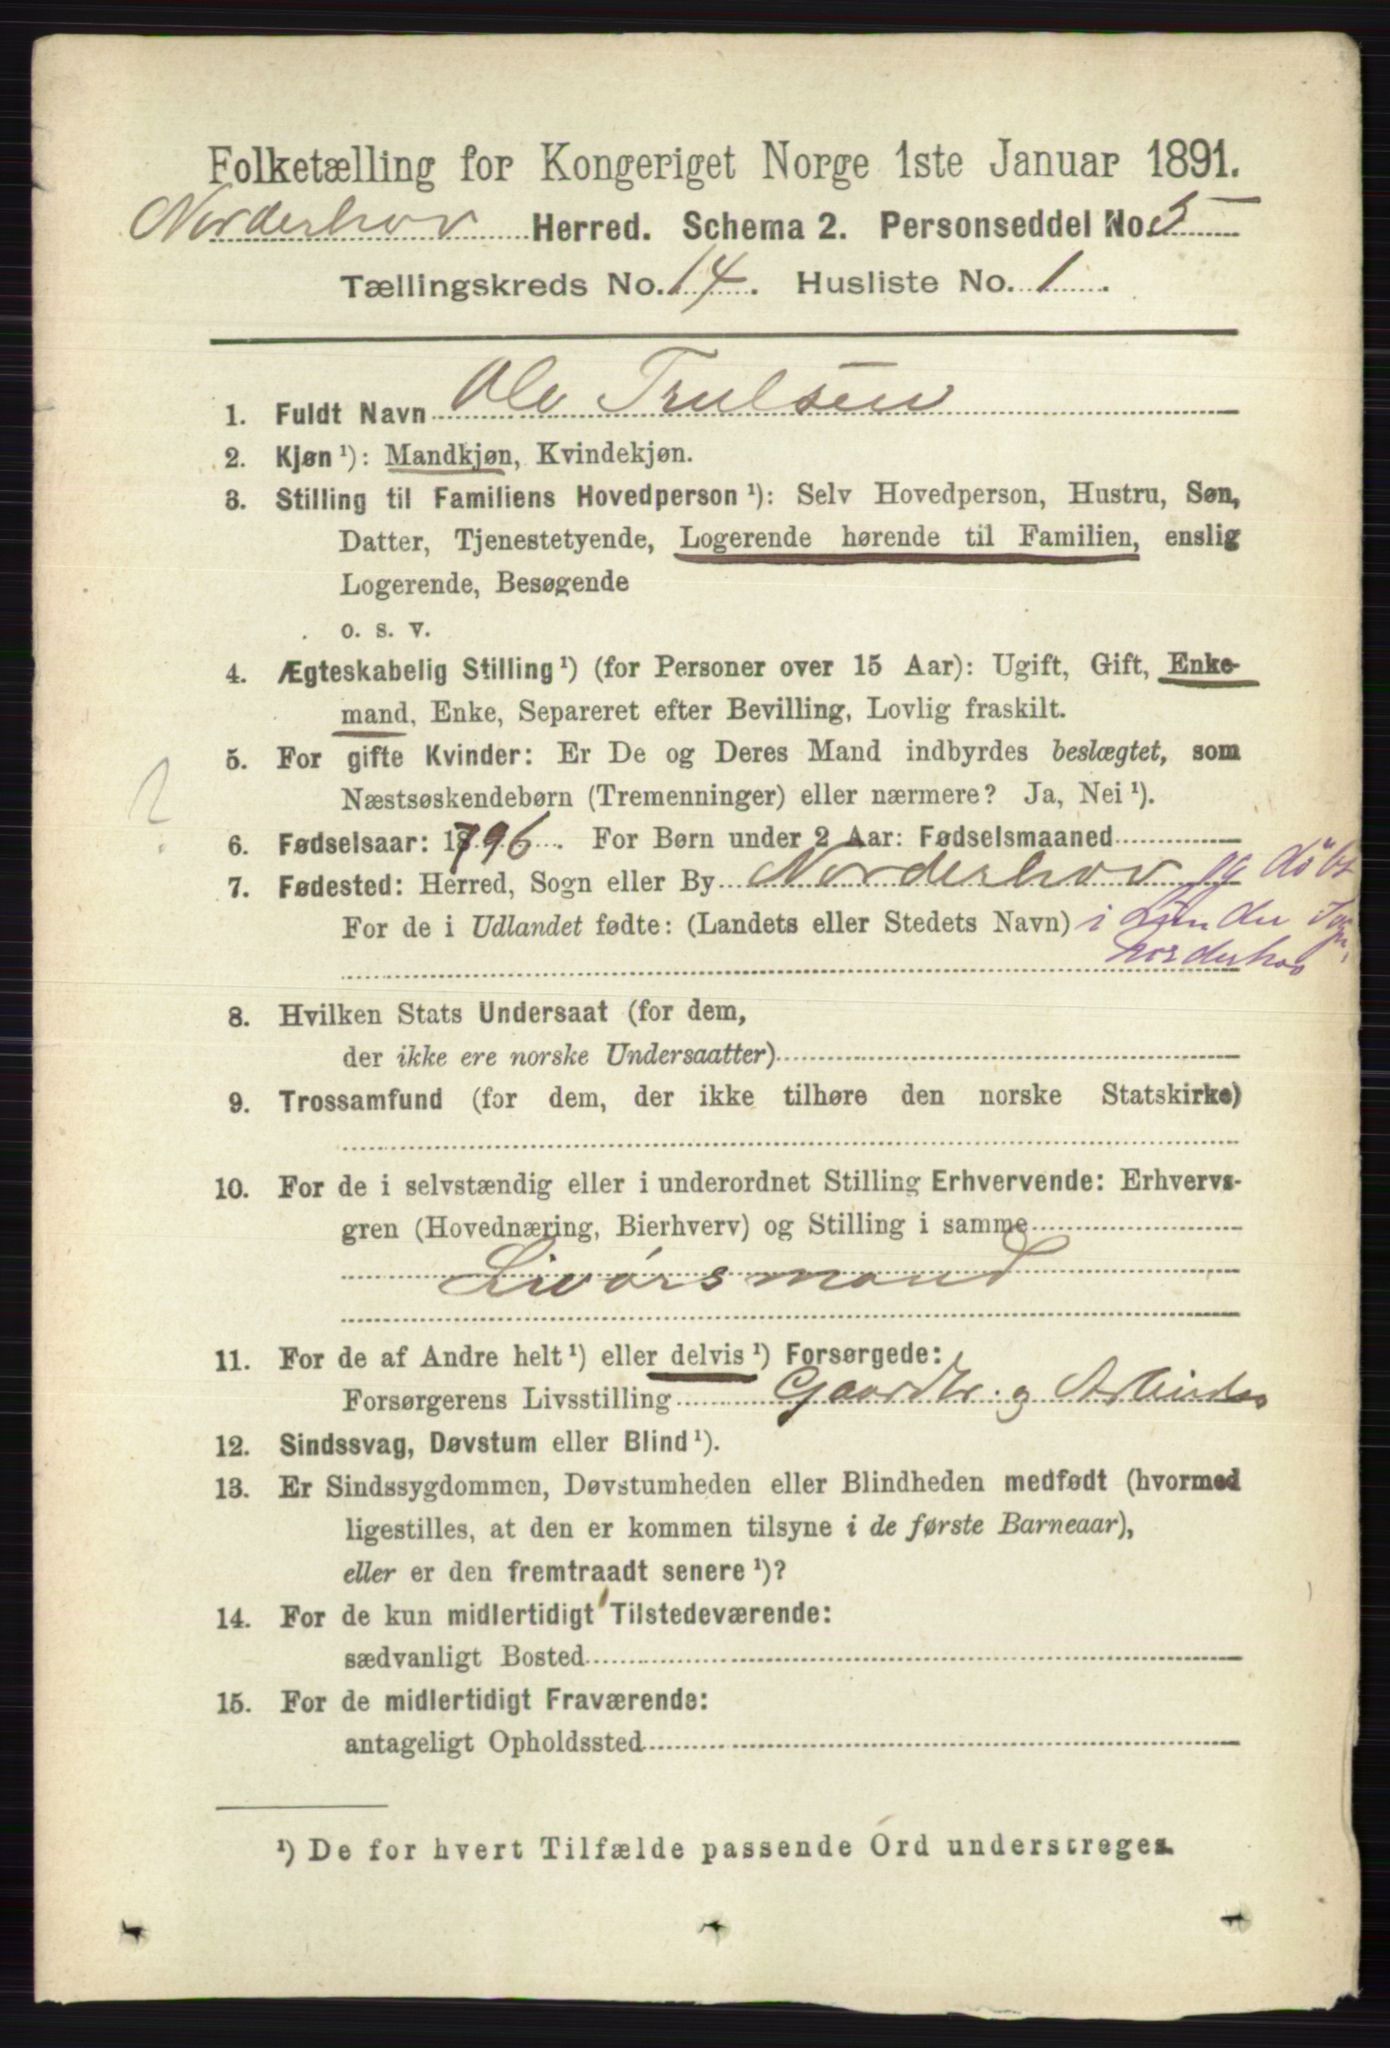 Folketælling for Kongeriget Norge 1ste Januar 1891.
Norderhov Herred. Schema 2. Personseddel No. 5
Tællingskreds No. 14. Husliste No. 1.
1. Fuldt Navn Ole Trulsen
2. Kjøn ¹): Mandkjøn, Kvindekjøn.
3. Stilling til Familiens Hovedperson ¹): Selv Hovedperson, Hustru, Søn,
Datter, Tjenestetyende, Logerende hørende til Familien, enslig
Logerende, Besøgende
o. s. v.
4. Ægteskabelig Stilling ¹) (for Personer over 15 Aar): Ugift, Gift, Enke-
mand, Enke, Separeret efter Bevilling, Lovlig fraskilt.
5. For gifte Kvinder: Er De og Deres Mand indbyrdes beslægtet, som
Næstsøskendebørn (Tremenninger) eller nærmere? Ja, Nei ¹).
?
6. Fødselsaar: 1796. For Børn under 2 Aar: Fødselsmaaned
7. Fødested: Herred, Sogn eller By Norderhov og döbt
For de i Udlandet fødte: (Landets eller Stedets Navn) i Lunder
Norderhov
8. Hvilken Stats Undersaat (for dem,
der ikke ere norske Undersaatter)
9. Trossamfund (for dem, der ikke tilhøre den norske Statskirke)
10. For de i selvstændig eller i underordnet Stilling Erhvervende: Erhvervs-
gren (Hovednæring, Bierhverv) og Stilling i samme
Livörsmand
11. For de af Andre helt ¹) eller delvis ¹) Forsørgede:
Forsørgerens Livsstilling Gaardbr. og
12. Sindssvag, Døvstum eller Blind ¹).
13. Er Sindssygdommen, Døvstumheden eller Blindheden medfødt (hvormed
ligestilles, at den er kommen tilsyne i de første Barneaar),
eller er den fremtraadt senere ¹)?
14. For de kun midlertidigt Tilstedeværende:
sædvanligt Bosted
15. For de midlertidigt Fraværende:
antageligt Opholdssted
¹) De for hvert Tilfælde passende Ord understreges.